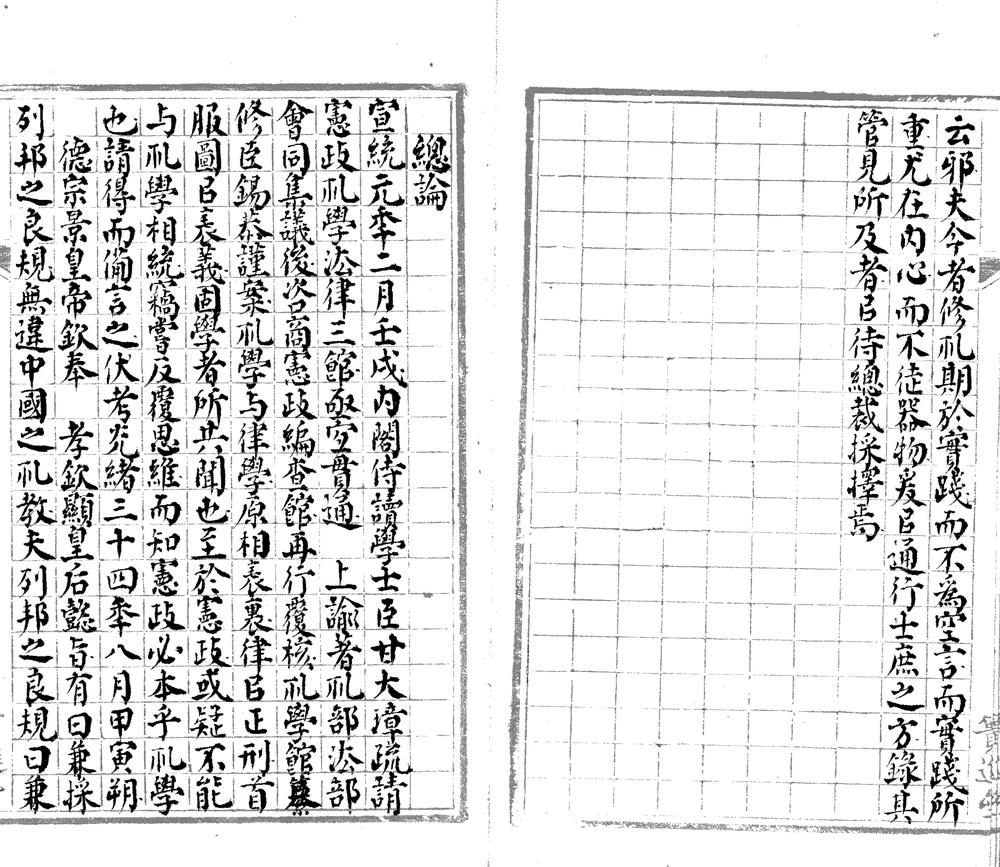 云邪夫今者修礼期於實踐而不為空言而實踐所
重尤在內心而不徒器物爰㠯通行士庶之方錄其
管見所及者㠯待總裁採擇焉
總論
宣統元秊二月壬戌內閣侍讀學士臣甘大璋疏請
憲政礼學法律三館亟宜貫通　上諭著礼部法部
會同集議後咨商憲政編查館再行覆核礼學館纂
修臣錫恭謹案礼學与律學原相表裏律㠯正刑首
服圖㠯表義固學者所共聞也至於憲政或疑不能
与礼學相統竊嘗反覆思維而知憲政必本乎礼學
也請得而備言之伏考光緒三十四秊八月甲寅朔
德宗景皇帝欽奉　孝欽顯皇后懿旨有曰兼採
列邦之良規無違中國之礼教夫列邦之良規曰兼